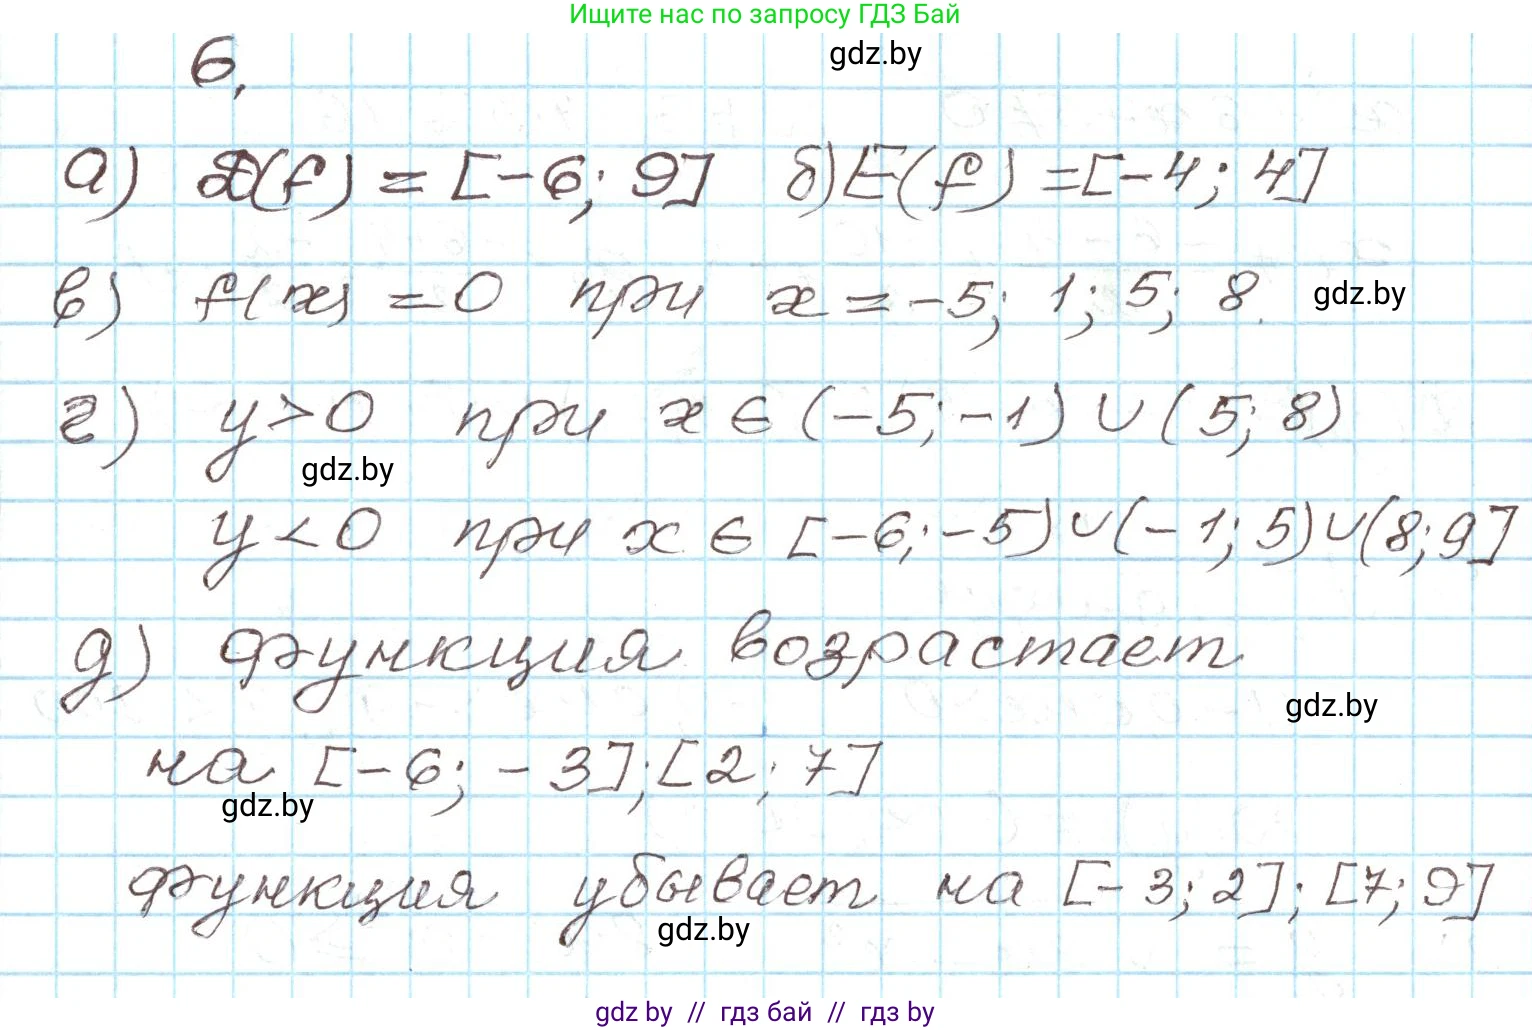 Ищите нас по запросу ГДЗ Бай
6,
gdz.by
а) D(f) = [-6; 9] б) E(f) = [-4; 4]
в) f(x) = 0 при x = -5; 1; 5; 8.
gdz.by
г) y > 0 при x ∈ (-5; -1) ∪ (5; 8)
gdz.by
y < 0 при x ∈ [-6; -5) ∪ (-1; 5) ∪ (8; 9]
д) функция возрастает
gdz.by
на [-6; -3]; [2; 7]
gdz.by
функция убывает на [-3; 2]; [7; 9]
gdz.by
gdz by // гдз бай // гдз by